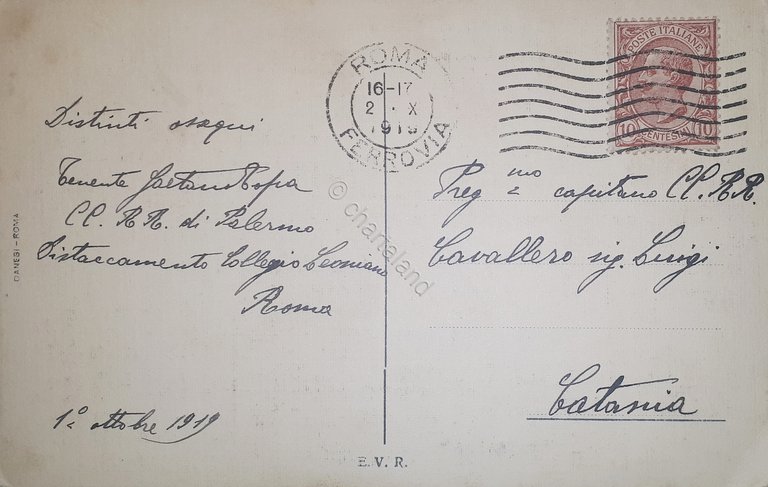 ROMA
16-17
2 · X
1919
FERROVIA
POSTE ITALIANE
10 CENTESIMI 10
Distinti ossequi
Tenente Gaetano
CC. RR. di Palermo
Distaccamento Collegio Leoniano
Roma
1° ottobre 1919
Preg mo capitano CC. RR.
Cavallero sig. Luigi
Catania
DANESI - ROMA
E. V. R.
© chartaland